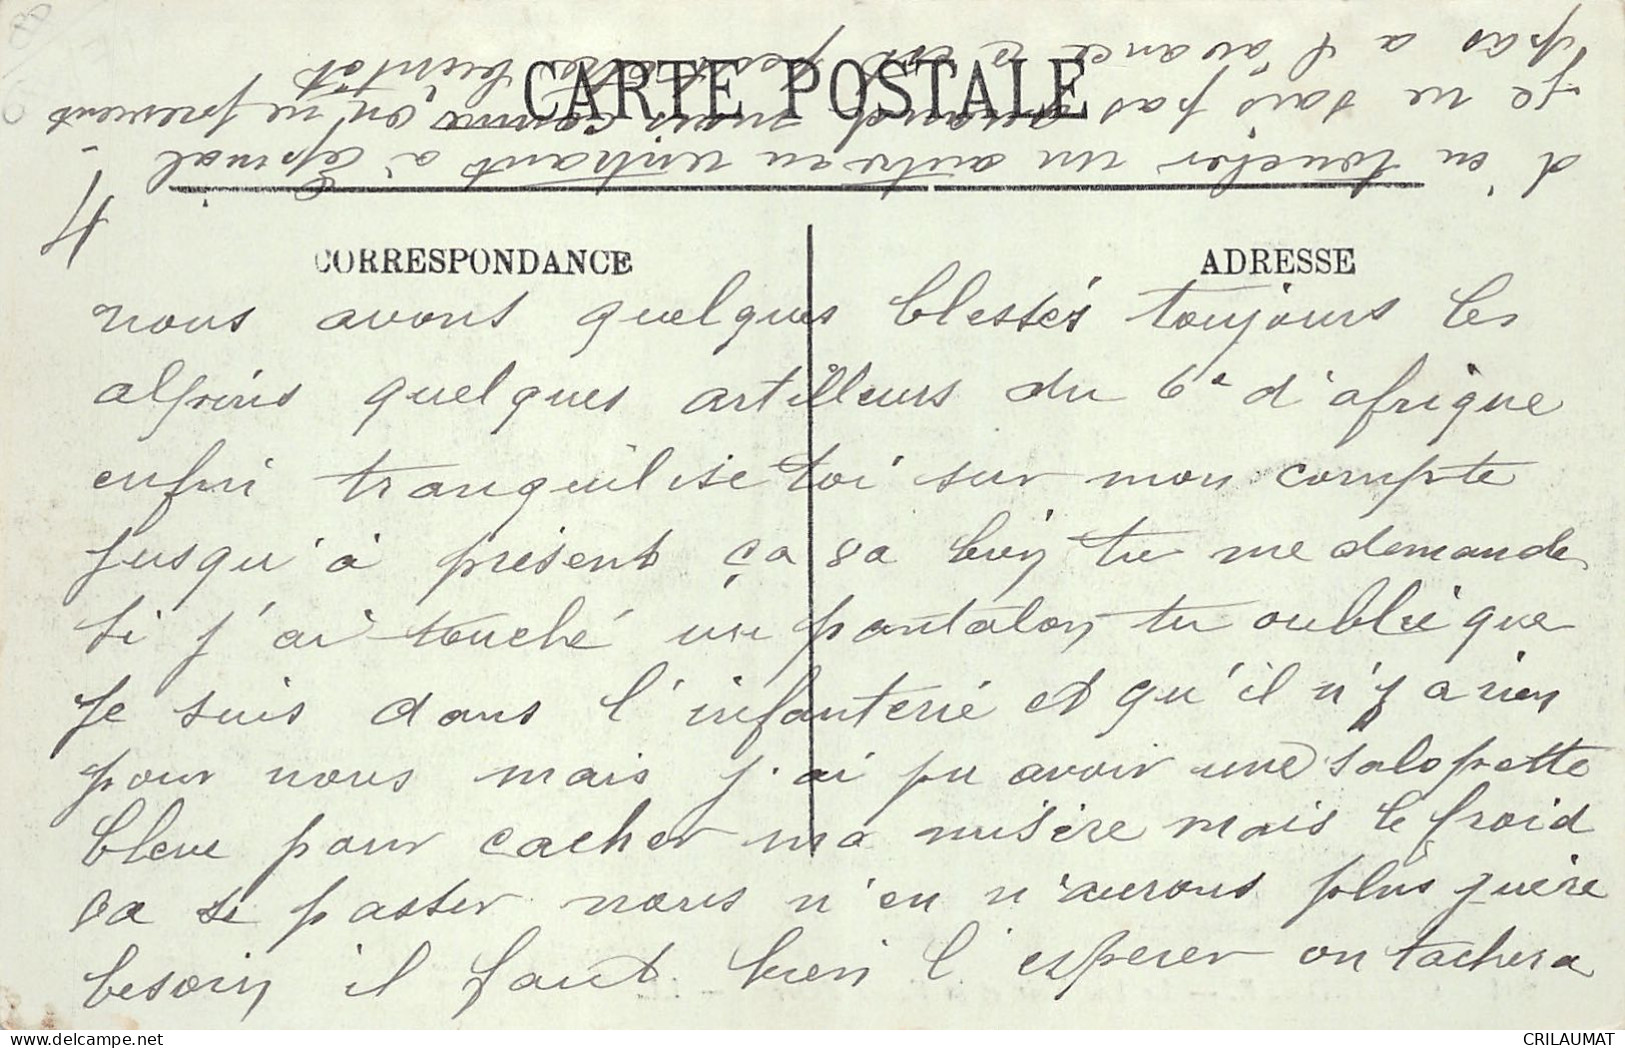 CARTE POSTALE
CORRESPONDANCE
ADRESSE
4
nous avons quelques blessés toujours les
alpins quelques artilleurs du 6e d'afrique
enfin tranquilise toi sur mon compte
jusqu'à présent ça va bien tu me demande
si j'ai touché un pantalon tu oublie que
je suis dans l'infanterie et qu'il n'y a rien
pour nous mais j'ai pu avoir une salopette
bleue pour cacher ma misère mais le froid
va se passer nous n'en n'aurons plus guère
besoin il faut bien l'esperer on tachera
d'en toucher un autre en rentrant à Epinal
je ne sais pas quand mais comme on ne previent
pas a l'avance c'est peut être bientôt
CRILAUMAT